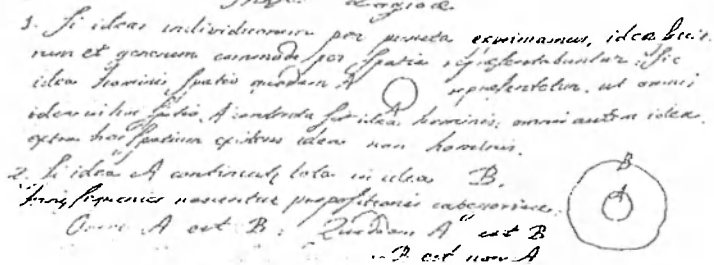 Logica
3. Si ideas individuorum per puncta exprimamus, ideae
et generum commode per spatia repraesentabuntur. Sic
idea hominis spatio quodam A repraesentetur, ut omnis
idea in hoc spatio A contenta sit idea hominis; omnis autem idea
extra hoc spatium existens idea non hominis.
A
2. Si idea A continetur tota in idea B,
nascentur propositiones categoricae:
Omne A est B: Quoddam A est B
B est non A
B
A